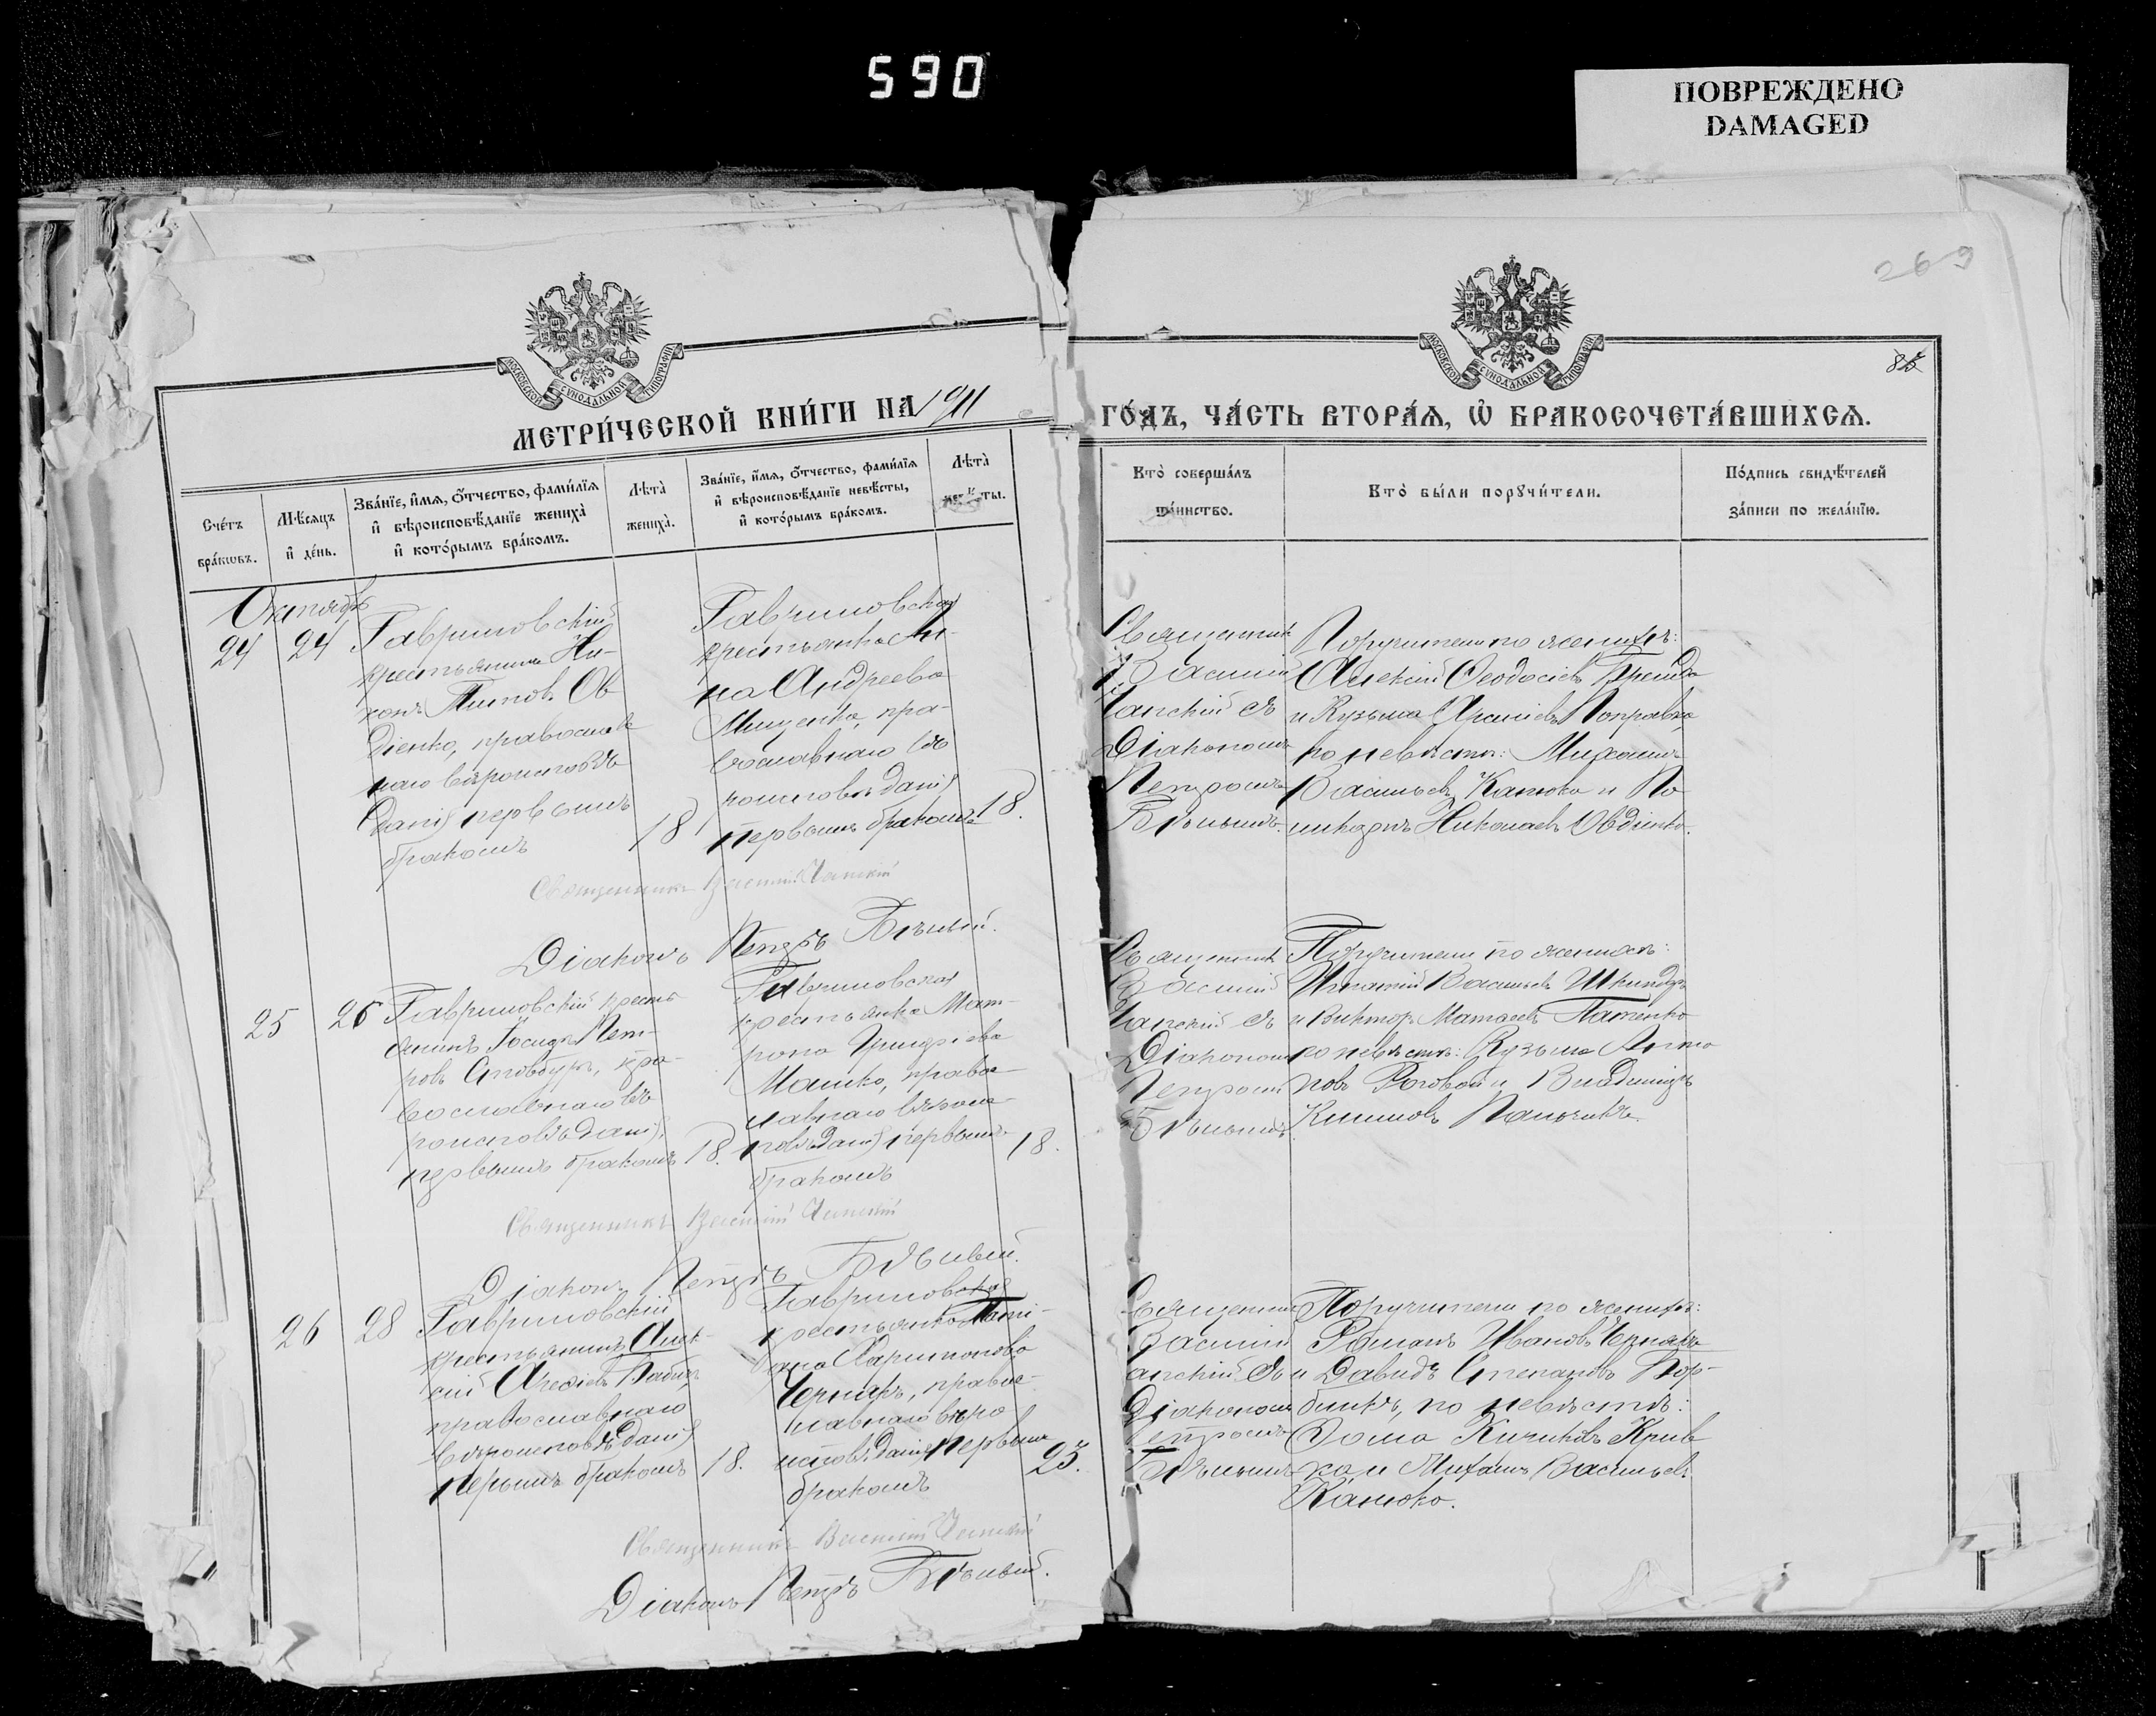 590
ПОВРЕЖДЕНО
DAMAGED
269
85
МОСКОВСКОЙ СѴНОДАЛЬНОЙ ТИПОГРАФІИ
МОСКОВСКОЙ СѴНОДАЛЬНОЙ ТИПОГРАФІИ
МЕТРИ́ЧЕСКОЙ КНИ́ГИ НА 1911
ГО́ДЪ, ЧА́СТЬ ВТОРА́Ѧ, Ѽ БРАКОСОЧЕТА́ВШИХСѦ.
Сче́тъ
бра́кωвъ.
Мѣ́сяцъ
и҆ де́нь.
Зва́нїе, и҆́мѧ, ѻ҆́тчество, фами́лїѧ
и҆ вѣроисповѣ́данїе жениха̀
и҆ кото́рымъ бра́комъ.
Лѣта̀
жениха̀.
Зва́нїе, и҆́мѧ, ѻ҆́тчество, фами́лїѧ
и҆ вѣроисповѣ́данїе невѣ́сты,
и҆ кото́рымъ бра́комъ.
Лѣта̀
невѣ́сты.
Кто̀ соверша́лъ
та́инство.
Кто̀ бы́ли порꙋчи́тели.
По́дпись свидѣ́телей
за́писи по жела́нїю.
Октябрь
24
24
Гавриловскій
крестьянинъ Ни-
конъ Титовъ Ов-
діенко, православ
наго вѣроисповѣ
данія первымъ
бракомъ
18
Гавриловская
крестьянка Ан-
на Андреева
Мищенко, пра-
вославнаго вѣ
роисповѣданія
первымъ бракомъ
18.
Священникъ
Василій
Чапскій съ
Діакономъ
Петромъ
Бѣлымъ.
Поручители по женихѣ:
Алексій Ѳеодосіевъ
и Кузьма Поправка
по невѣстѣ: Михаилъ
Васильевъ Канюка и По
ликарпъ Николаевъ Овдіенко.
Священникъ Василій Чапскій
Діаконъ Петръ Бѣлый.
25
26
Гавриловскій кресть
янинъ Пет-
ровъ пра-
вославнаго вѣ
роисповѣданія,
первымъ бракомъ
18.
Гавриловская
крестьянка Мат-
рона Григоріева
Машко, правос-
лавнаго вѣроис-
повѣданія первымъ
бракомъ
18.
Священникъ
Василій
Чапскій съ
Діакономъ
Петромъ
Бѣлымъ.
Поручители по женихѣ:
Игнатій Васильевъ
и Викторъ Матвеевъ
по невѣстѣ: Кузьма Анто
новъ и Владиміръ
Климовъ
Священникъ Василій Чапскій
Діаконъ Петръ Бѣлый.
26
28
Гавриловскій
крестьянинъ Алек-
сій
православнаго
вѣроисповѣданія
первымъ бракомъ
18.
Гавриловская
крестьянка Тати-
ана Харитонова
Чернякъ, правос-
лавнаго вѣро
исповѣданія первымъ
бракомъ
23.
Священникъ
Василій
Чапскій съ
Діакономъ
Петромъ
Бѣлымъ
Поручители по женихѣ:
Романъ Ивановъ Чернякъ
и Давидъ Степановъ
по невѣстѣ:
Ѳома
и Михаилъ Васильевъ
Канюка.
Священникъ Василій Чапскій
Діаконъ Петръ Бѣлый.